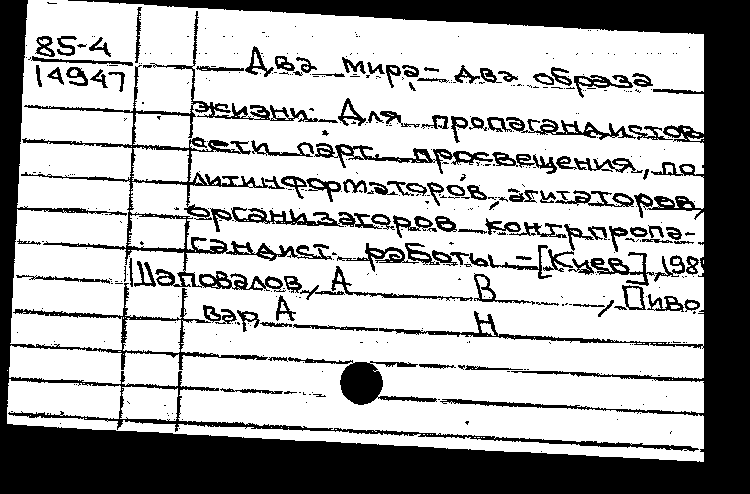 85-4
14947
Два мира - два образа
жизни: Для пропагандистов
сети парт. просвещения, по
литинформаторов, агитаторов,
организаторов контрпропа-
гандист. работы - [Киев], 198
Шаповалов, А В , Пиво
вар, А Н